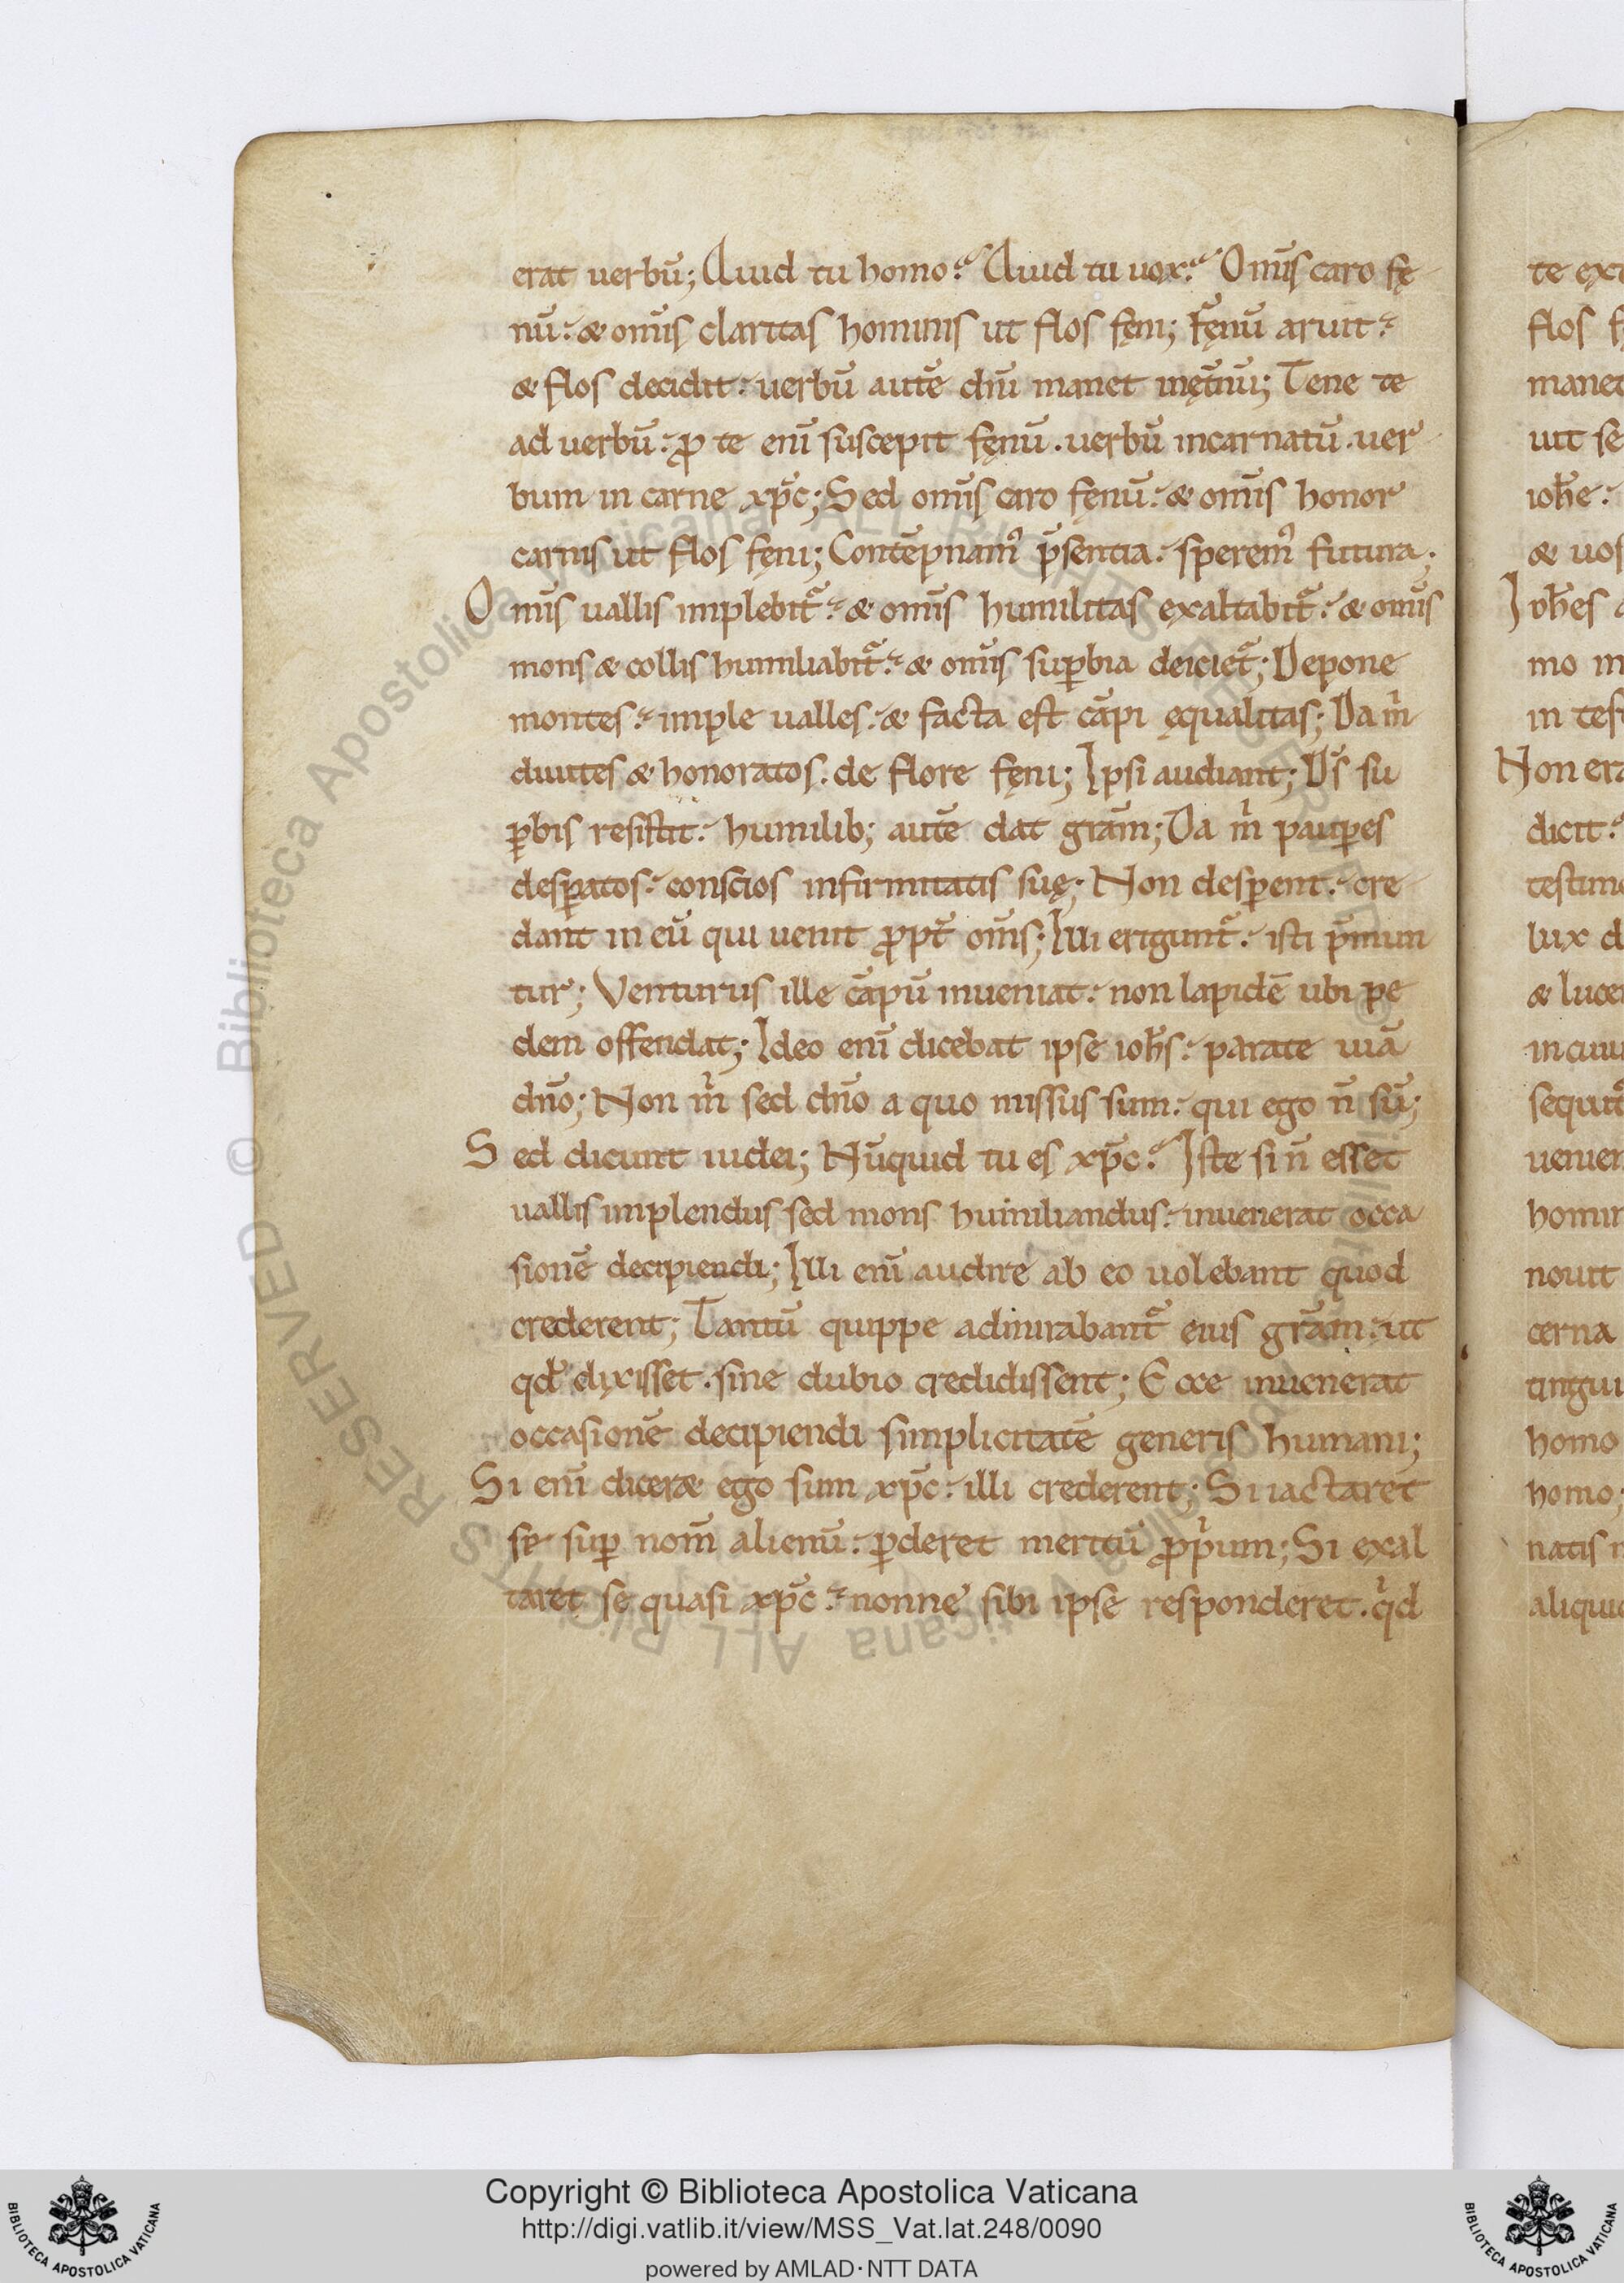 erat uerbū; Quid tu homo? Quid tu uox? Om̄is caro fę
nū. & om̄is claritas hominis ut flos fęni; Fęnū aruit.
& flos decidit. uerbū autē dn̄i manet inęt̄nū; Tene te
ad uerbū. ꝓ te eni̅ suscepit fęnū. uerbū incarnatū. uer
bum in carne xp̄c; Sed om̄is caro fęnū. & om̄is honor
carnis ut flos fęni; Contēpnamꝰ p̄sentia. speremꝰ futura;
Om̄is uallis implebit᷑. & om̄is humilitas exaltabit᷑. & om̄is
mons & collis humiliabit᷑. & om̄is suꝑbia deiciet᷑; Depone
montes. imple ualles. & facta est cāpi ęqualitas; Da m̄
diuites & honoratos. de flore fęni; Ipsi audiant; Ds̄ su
ꝑbis resistit. humilib; autē dat grām; Da m̄ pauꝑes
desꝑatos. conscios infirmitatis suę; Non desꝑent. cre
dant in eū qui uenit ꝓpt̄ om̄s; Illi erigunt᷑. isti p̄mun
tur; Venturus ille cāpū inueniat. non lapidē ubi pe
dem offendat; Ideo eni̅ dicebat ipse ioh̄s. parate uiā
dn̄o; Non m̄ sed dn̄o a quo missus sum. qui ego n̄ sū;
Sed dicunt iudei; Nūquid tu es xp̄c? Iste si n̄ esset
uallis implendus sed mons humiliandus. inuenerat occa
sionē decipiendi; Illi eni̅ audire ab eo uolebant quod
crederent; Tantū quippe admirabant᷑ eius grām. ut
qd̄ dixisset. sine dubio credidissent; Ecce inuenerat
occasionē decipiendi simplicitatē generis humani;
Si eni̅ dicer& ego sum xp̄c. illi crederent; Si iactaret
se suꝑ nom̄ alienū. ꝑderet meritū ꝓp̄um; Si exal
taret se quasi xp̄c. nonne sibi ipse responderet. qid
te ex
flos f
manet
uit se
ioh̄e.
& uos
Ioh̄es
mo in
in tes
Non era
dicit.
testimo
lux d
& lucer
in cuiu
sequit᷑
uenien
homin
nouit
cerna
tingui
homo
homo;
natis
aliquid
Copyright © Biblioteca Apostolica Vaticana
http://digi.vatlib.it/view/MSS_Vat.lat.248/0090
powered by AMLAD·NTT DATA
BIBLIOTECA APOSTOLICA VATICANA
BIBLIOTECA APOSTOLICA VATICANA
© Biblioteca Apostolica Vaticana ALL RIGHTS RESERVED